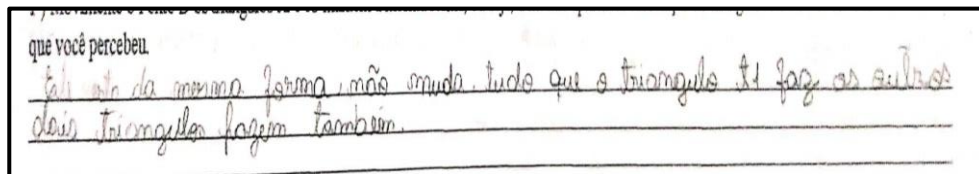 que você percebeu.
da mesma forma, não muda. tudo que o triangulo t1 faz os outros
dois triangulos fazem também.